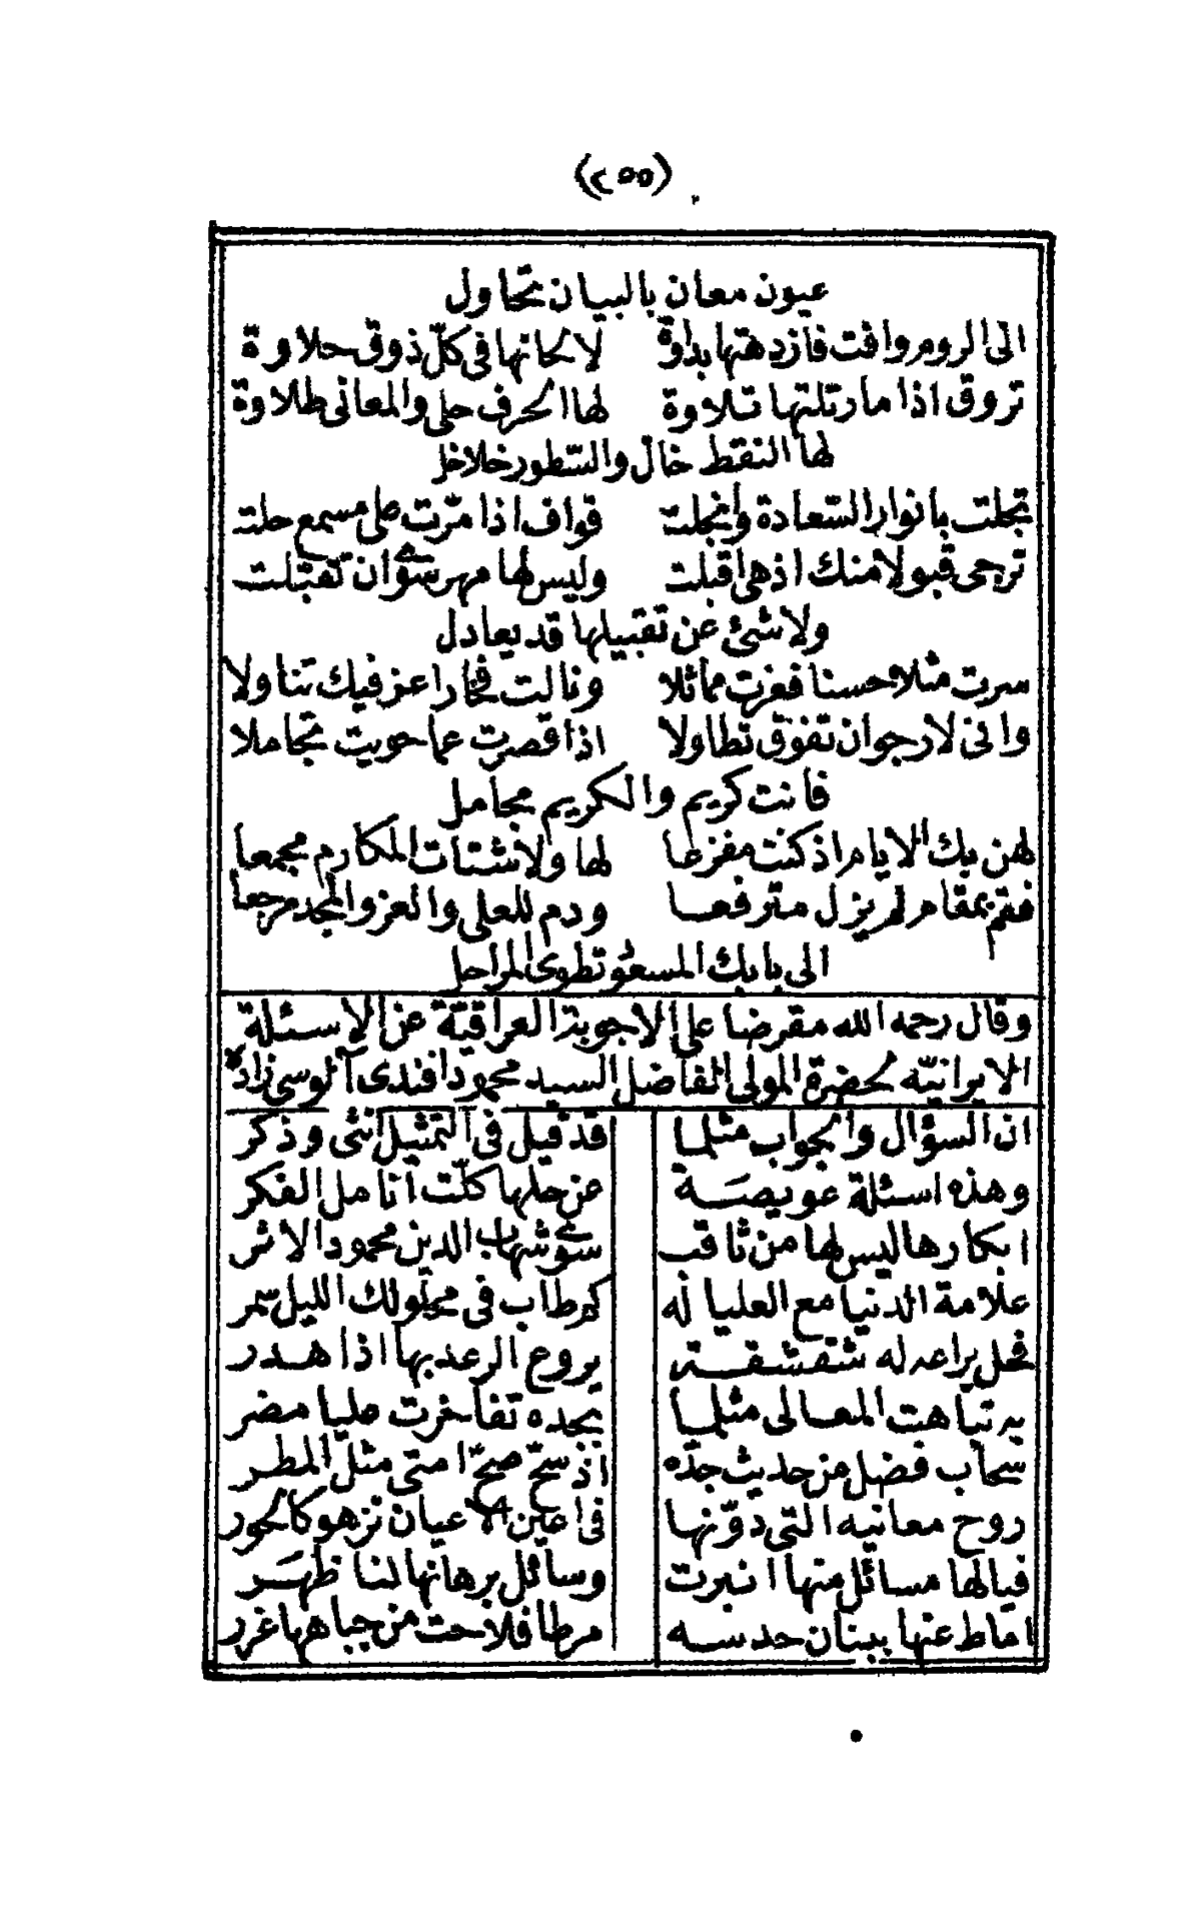 (٢٥٥)
عيون معان بالبيان تحاول
الى الروم وافت فازدهتها بداوة لالحانها فى كلّ ذوق حلاوة
تروق اذا ما رتلتها تلاوة لها الحرف حلى والمعانى طلاوة
لها النقط خال والسّطور خلاخل
تجلت بانوار السّعادة وانجلت قواف اذا مرّت على مسمع حلت
ترجى قبولا منك اذ هى اقبلت وليس لها مهر سوى ان تقبّلت
ولا شئ عن تقبيلها قد يعادل
سرت مثلا حسنا فعزت مماثلا ونالت فخارا عز فيك تناولا
وانى لارجو ان تفوق تطاولا اذا قصرت عما حويت تجاملا
فانت كريم والكريم مجامل
لهن بك الايام اذ كنت مفزعا لها ولاشتات المكارم مجمعا
فقم بمقام لم يزل مترفعا ودم للعلى والعز والمجد مرجعا
الى بابك المسعود تطوى المراحل
وقال رحمه الله مقرضا على الاجوبة العراقية عن الاسئلة
الايرانيّه لحضرة المولى الفاضل السيد محمود افندى آلوسى زاده
ان السؤال والجواب مثلما قد قيل فى التمثيل انثى وذكر
وهذه اسئلة عويصة عن حلها كلّت انامل الفكر
ابكارها ليس لها من ثاقب سوى شهاب الدين محمود الاثر
علامة الدنيا مع العليا له كم طاب فى محلولك الليل سمر
فحل يراعه له شقشقة يروع الرعد بها اذا هدر
به تباهت المعالى مثلما بجده تفاخرت عليا مضر
سحاب فضل من حديث جدّه اذ سحّ صحّ امتى مثل المطر
روح معانيه التى دوّنها فى اعين الاعيان تزهو كالحور
فيالها مسائل منها انبرت وسائل برهانها لنا ظهر
اماط عنها ببنان حدسه مرطا فلاحت من جباهها غرر